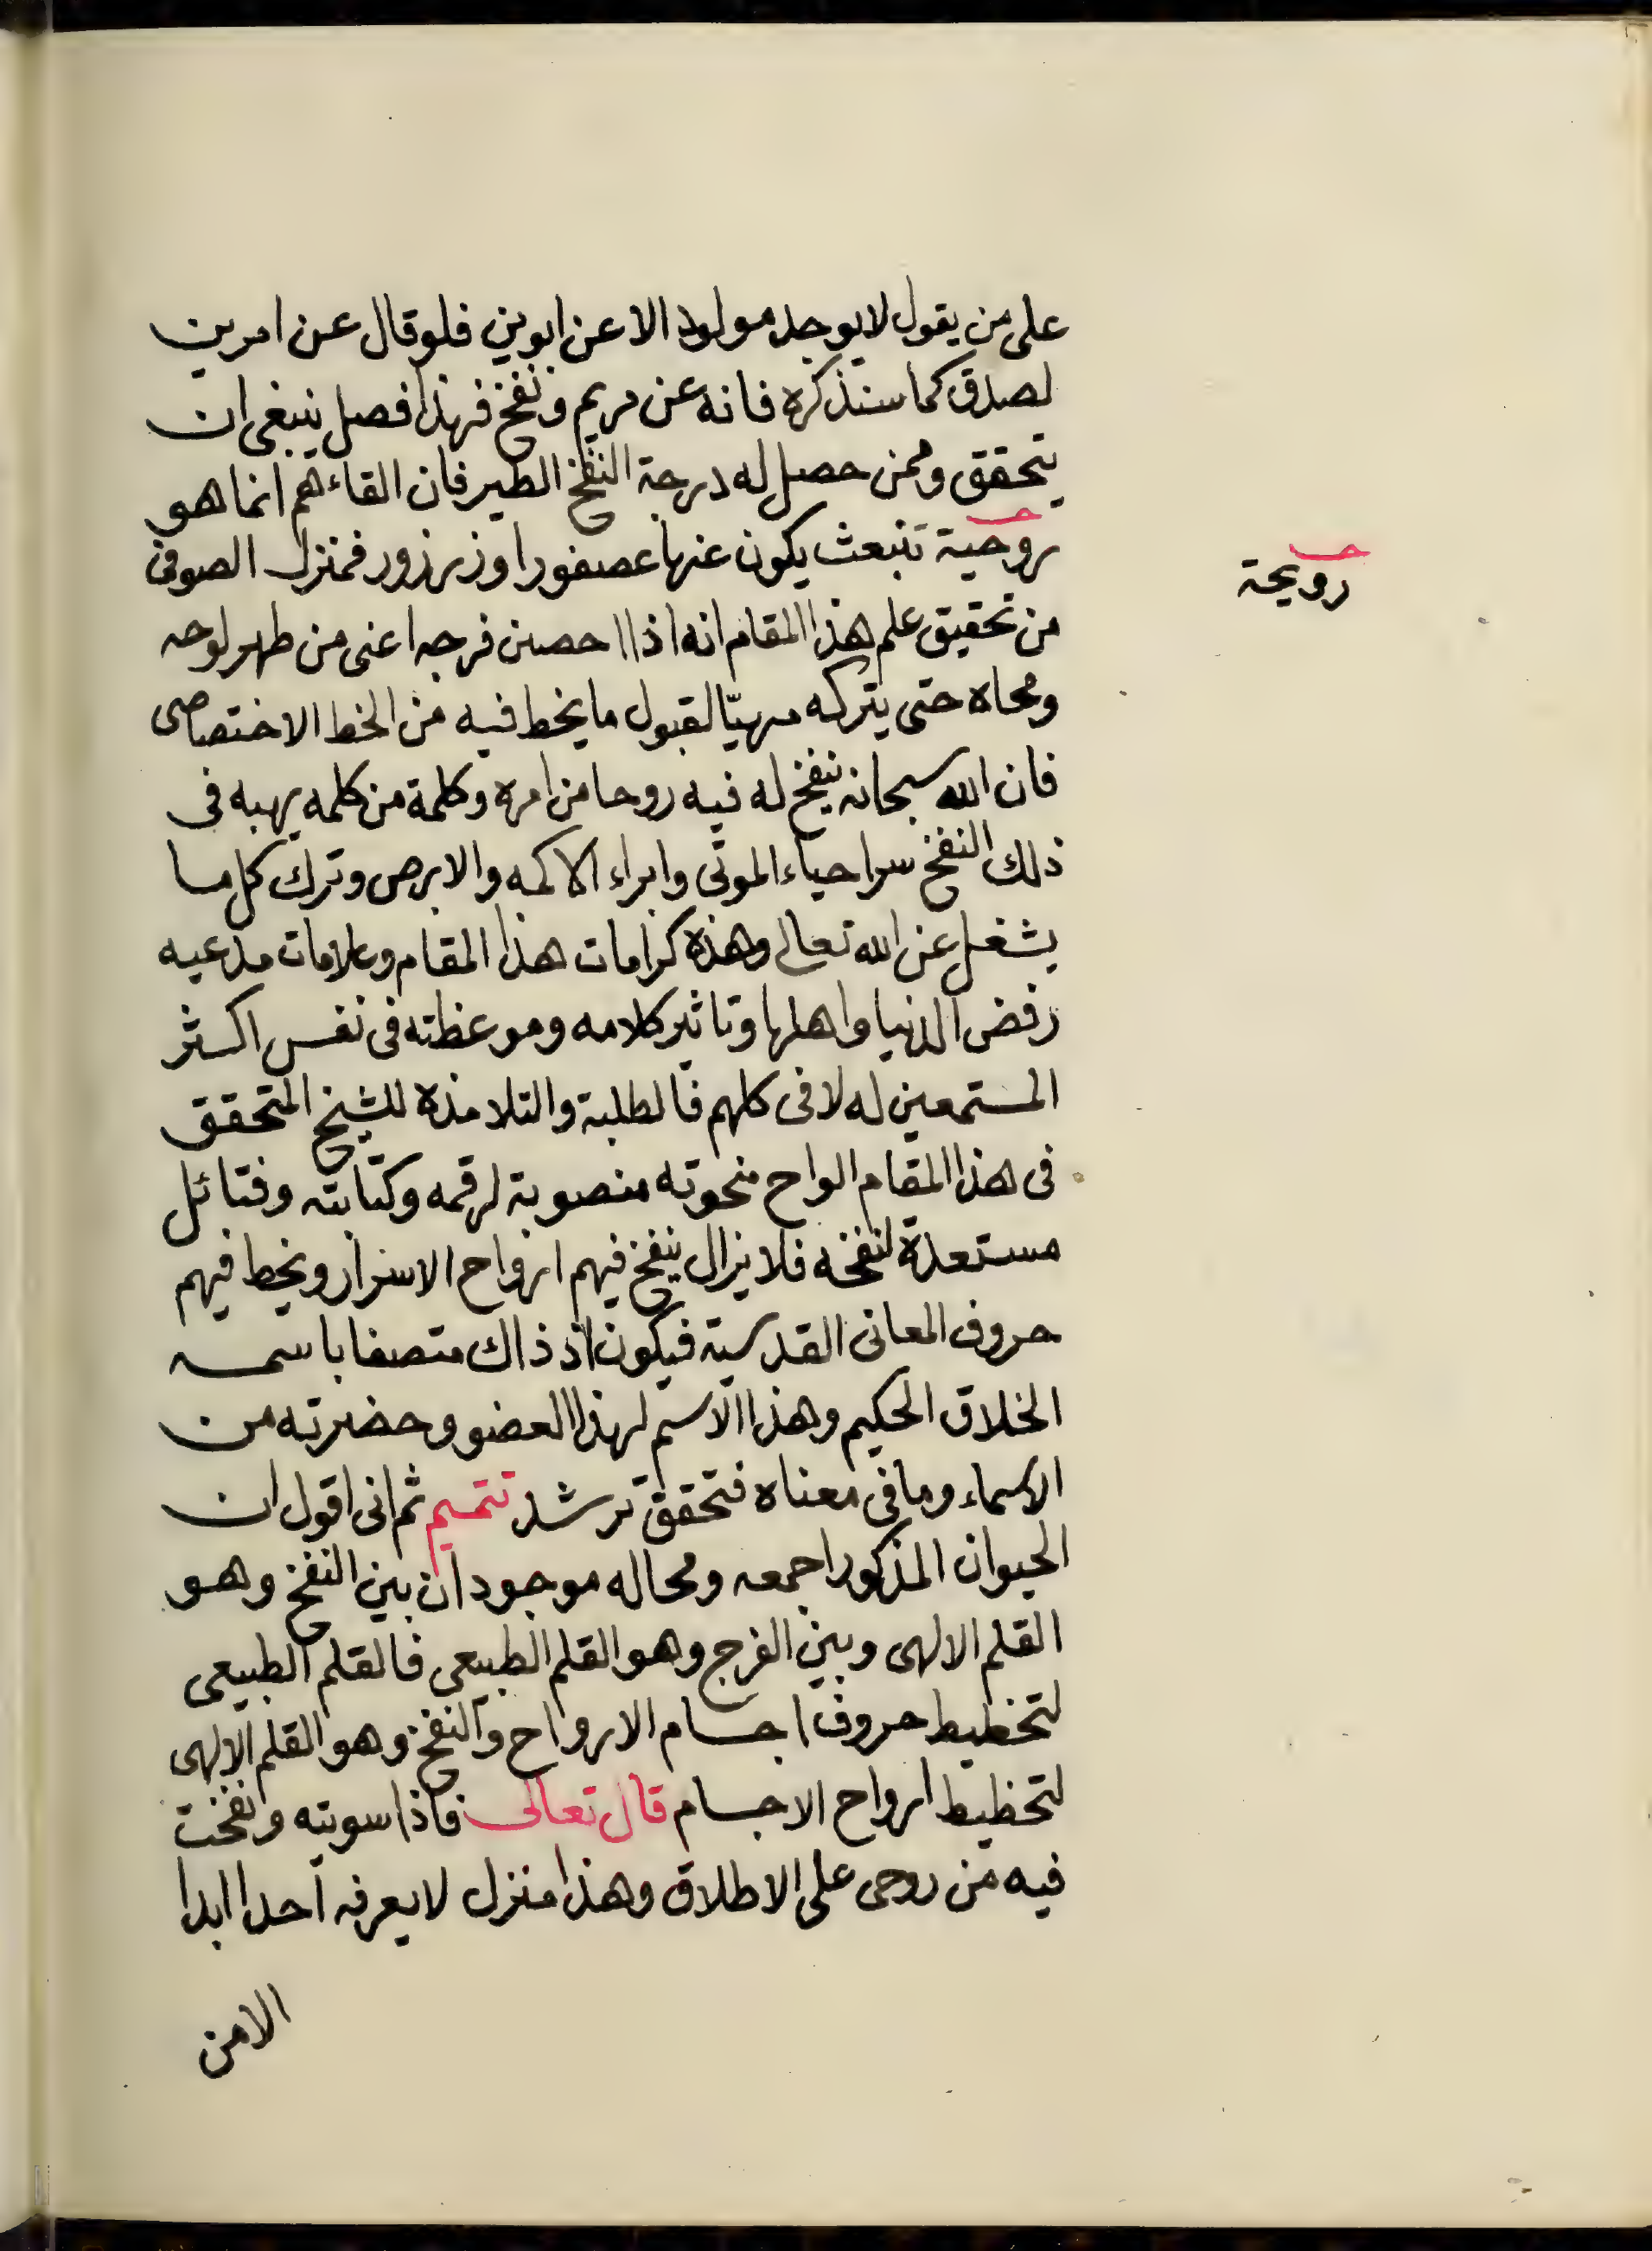 على من يقول لايوجد مولود الا عن ابوين فلو قال عن امرين
لصدق كما سنذكره فانه عن مريم ونفخ فهذا فصل ينبغى ان
يتحقق وممن حصل له درجة النفخ الطير فان القاءهم انما هو
روحية تنبعث يكون عنها عصفورا وزرزور فمنزل الصوفى
رويحة
من تحقيق علم هذا المقام انه اذا احصن فرجه اعنى من طهر لوحه
ومحاه حتى يتركه مهيّا لقبول ما يخط فيه من الخط الاختصاصى
فان الله سبحانه ينفخ له فيه روحا من امره وكلمة من كلمه يهبه فى
ذلك النفخ سر احياء الموتى وابراء الاكمه والابرص وترك كل ما
يشغل عن الله تعالى وهذه كرامات هذا المقام وعلامات مدعيه
رفض الدنيا واهلها وتاثير كلامه وموعظته فى نفس اكثر
المستمعين له لا فى كلهم فالطلبة والتلامذه للشيخ المتحقق
فى هذا المقام الواح منحوته منصوبة لرقمه وكتابته وفتائل
مستعدة لنفخه فلا يزال ينفخ فيهم ارواح الاسرار ويخط فيهم
حروف المعانى القدسية فيكون اذ ذاك متصفا باسمه
الخلاق الحكيم وهذا الاسم لهذا العضو وحضرته من
الاسماء وما فى معناه فتحقق ترشد تتميم ثم انى اقول ان
الحيوان المذكور اجمعه ومحاله موجودان بين النفخ وهو
القلم الالهى وبين الفرج وهو القلم الطبيعى فالقلم الطبيعى
لتخطيط حروف اجسام الارواح والنفخ وهو القلم الالهى
لتخطيط ارواح الاجسام قال تعالى فاذا سويته ونفخت
فيه من روحى على الاطلاق وهذا منزل لايعرفه احدا ابدا
الامن